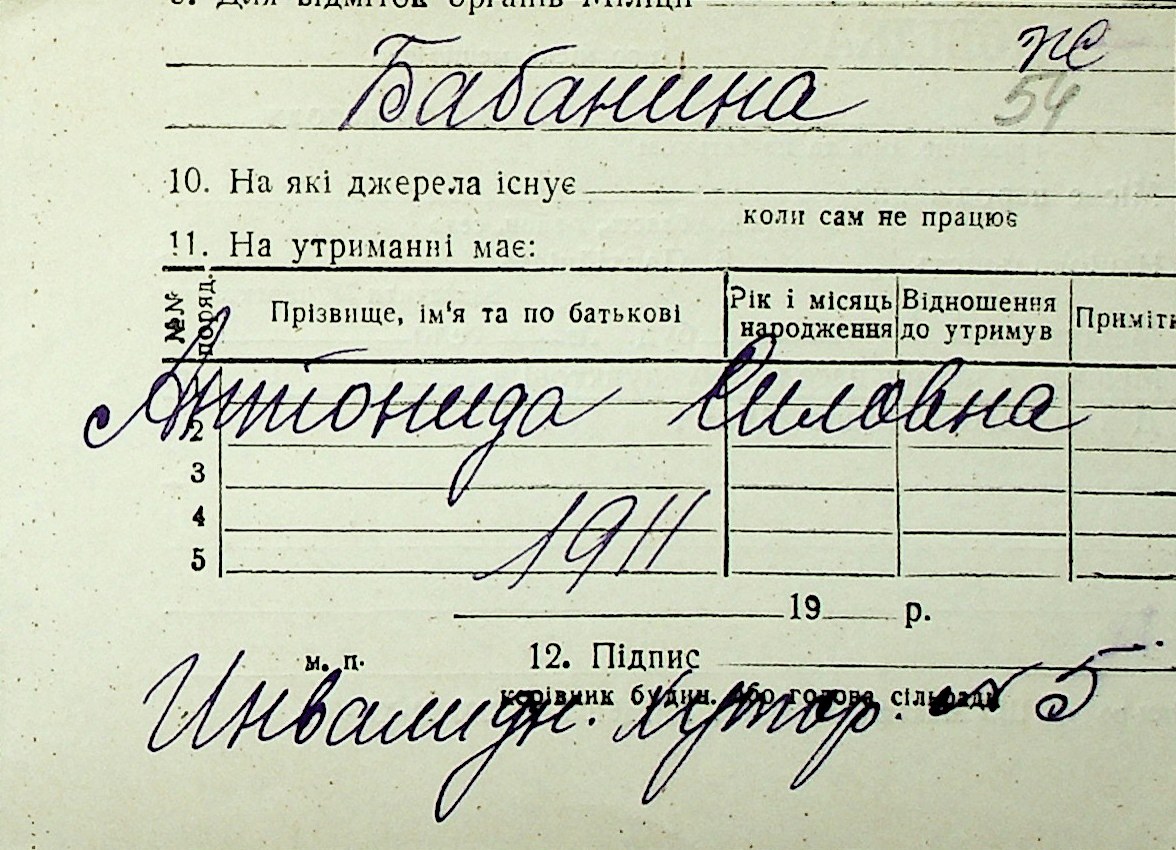 9. Для відміток органів Міліції
Бабанина
54
10. На які джерела існує
коли сам не працює
11. На утриманні має:
№№ поряд.
Прізвище, ім'я та по батькові
Рік і місяць народження
Відношення до утримув
Приміт
Антонида Силовна
2
3
4
5
1911
19 р.
м. п.
12. Підпис
керівник будин. або голова сільради
Инвалидн. Хутор. № 5